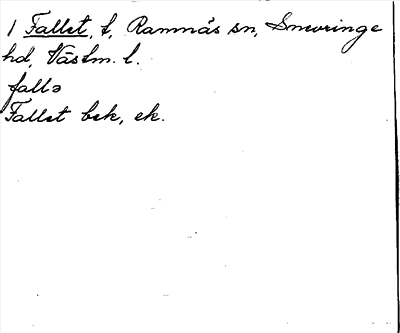 1 Fallet, t, Ramnäs sn, Snevringe
hd, Västm. l.
fallə
Fallet bek, ek.